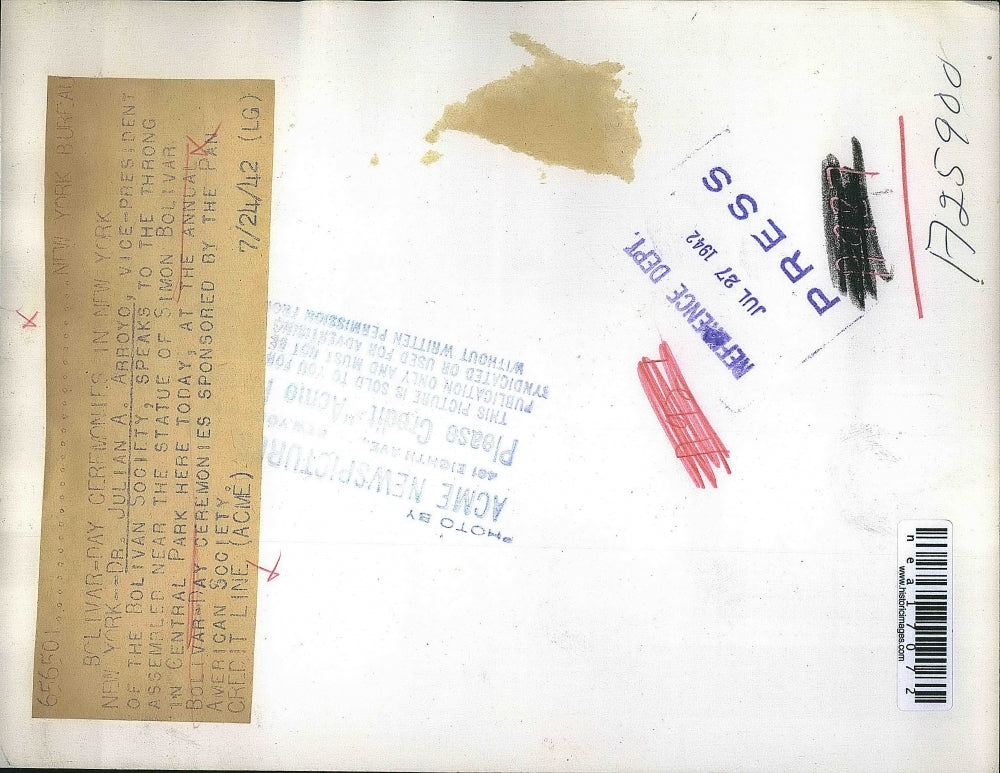 656501 NEW YORK BUREAU
BOLIVAR-DAY CEREMONIES IN NEW YORK
NEW YORK--DR. JULIAN A. ARROYO, VICE-PRESIDENT
OF THE BOLIVAN SOCIETY, SPEAKS TO THE THRONG
ASSEMBLED NEAR THE STATUE OF SIMON BOLIVAR
IN CENTRAL PARK HERE TODAY, AT THE ANNUAL
BOLIVAR-DAY CEREMONIES SPONSORED BY THE PAN
AVERICAN SOCIETY.
CREDIT LINE (ACME) 7/24/42 (LG)
PHOTO BY
ACME NEWSPICTUR
461 EIGHTH AVE., NEW YO
Please Credit "Acme
THIS PICTURE IS SOLD TO YOU FOR
PUBLICATION ONLY AND MUST NOT BE
SYNDICATED OR USED FOR ADVERTISING
WITHOUT WRITTEN PERMISSION FROM
REFERENCE DEPT.
JUL 27 1942
PRESS
A25900
nea17072
www.historicimages.com